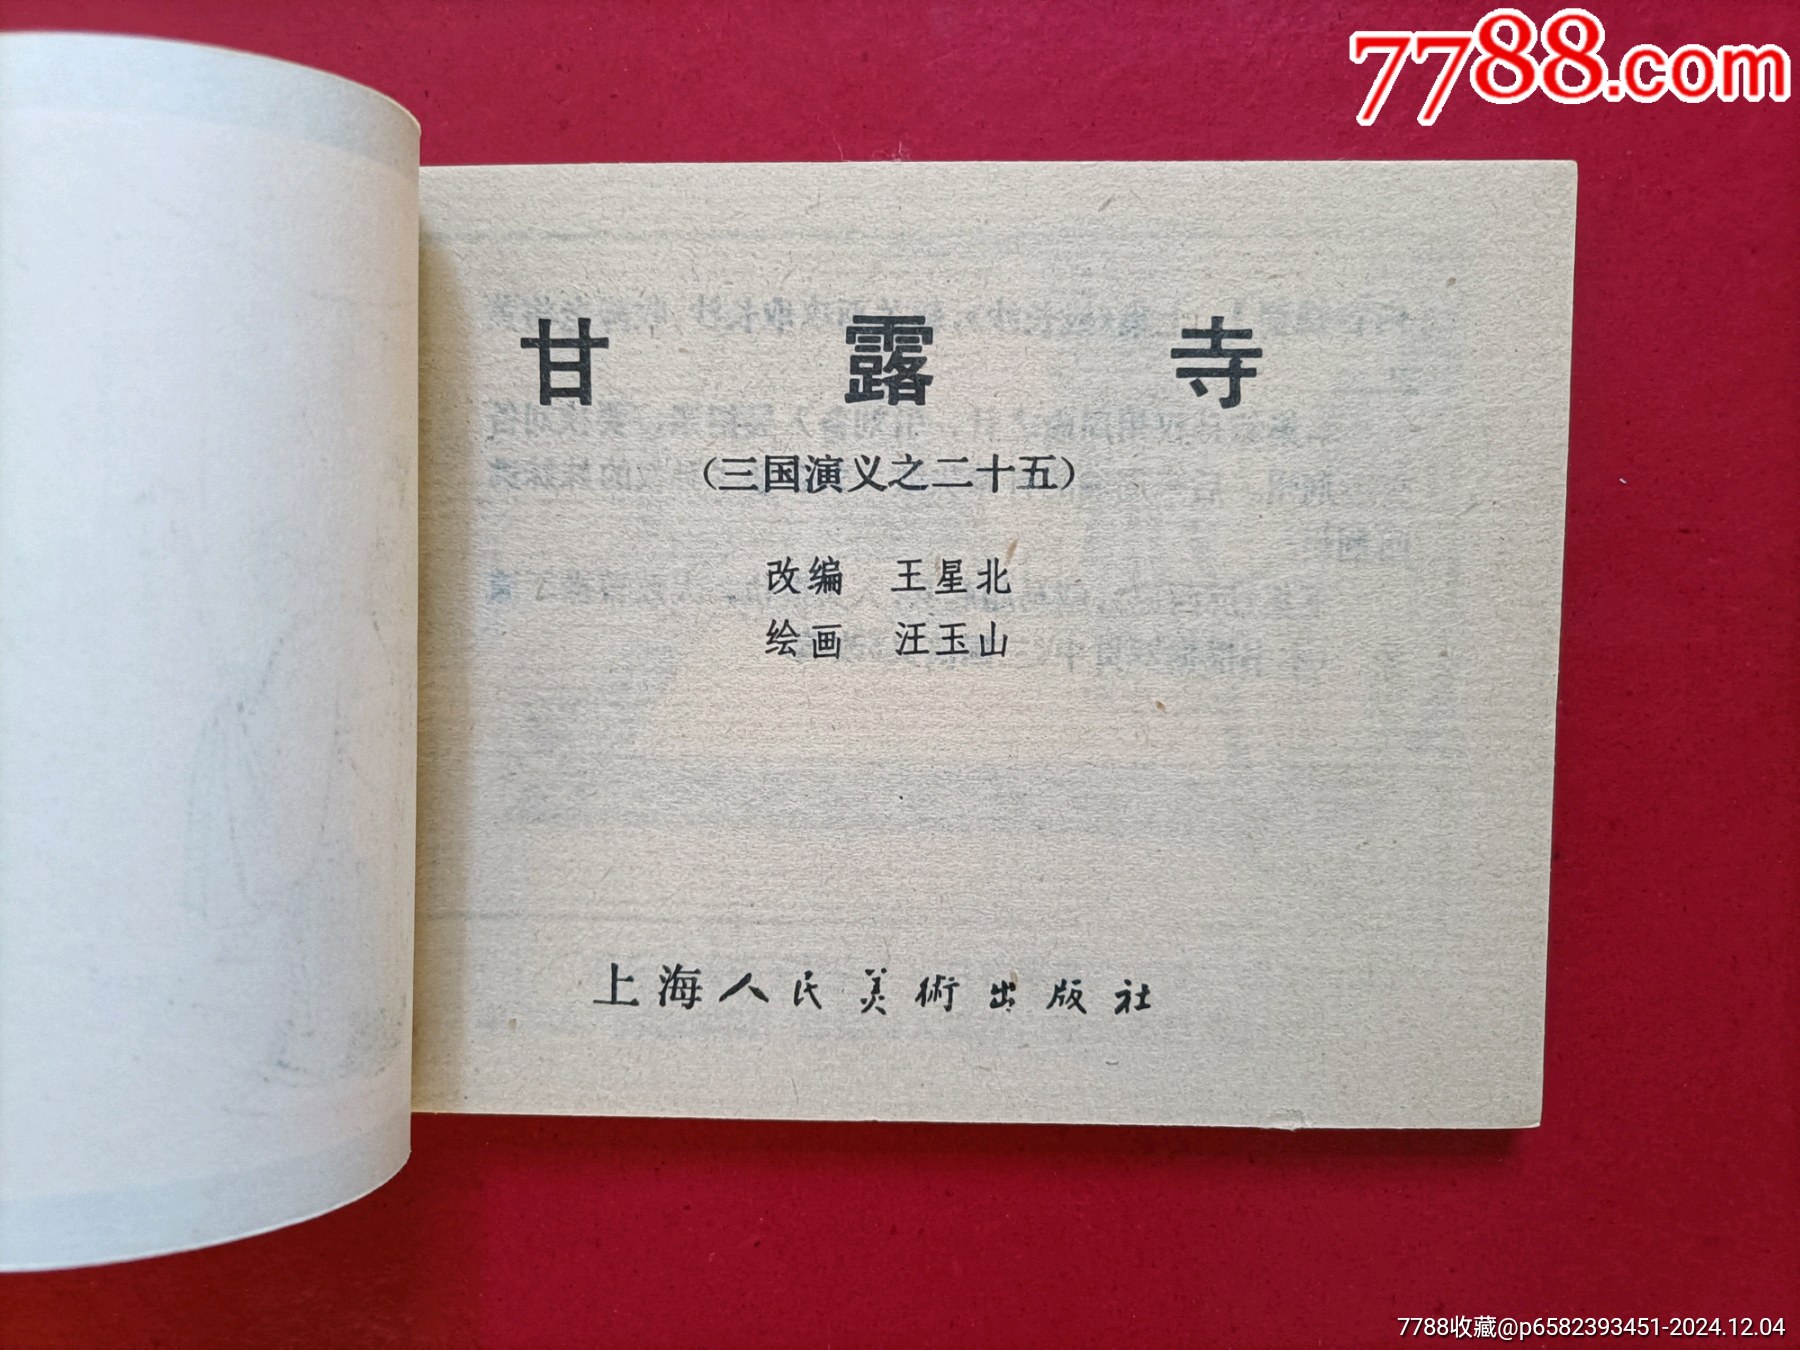 7788.com
甘露寺
（三国演义之二十五）
改编 王星北
绘画 汪玉山
上海人民美術出版社
7788收藏@p6582393451-2024.12.04